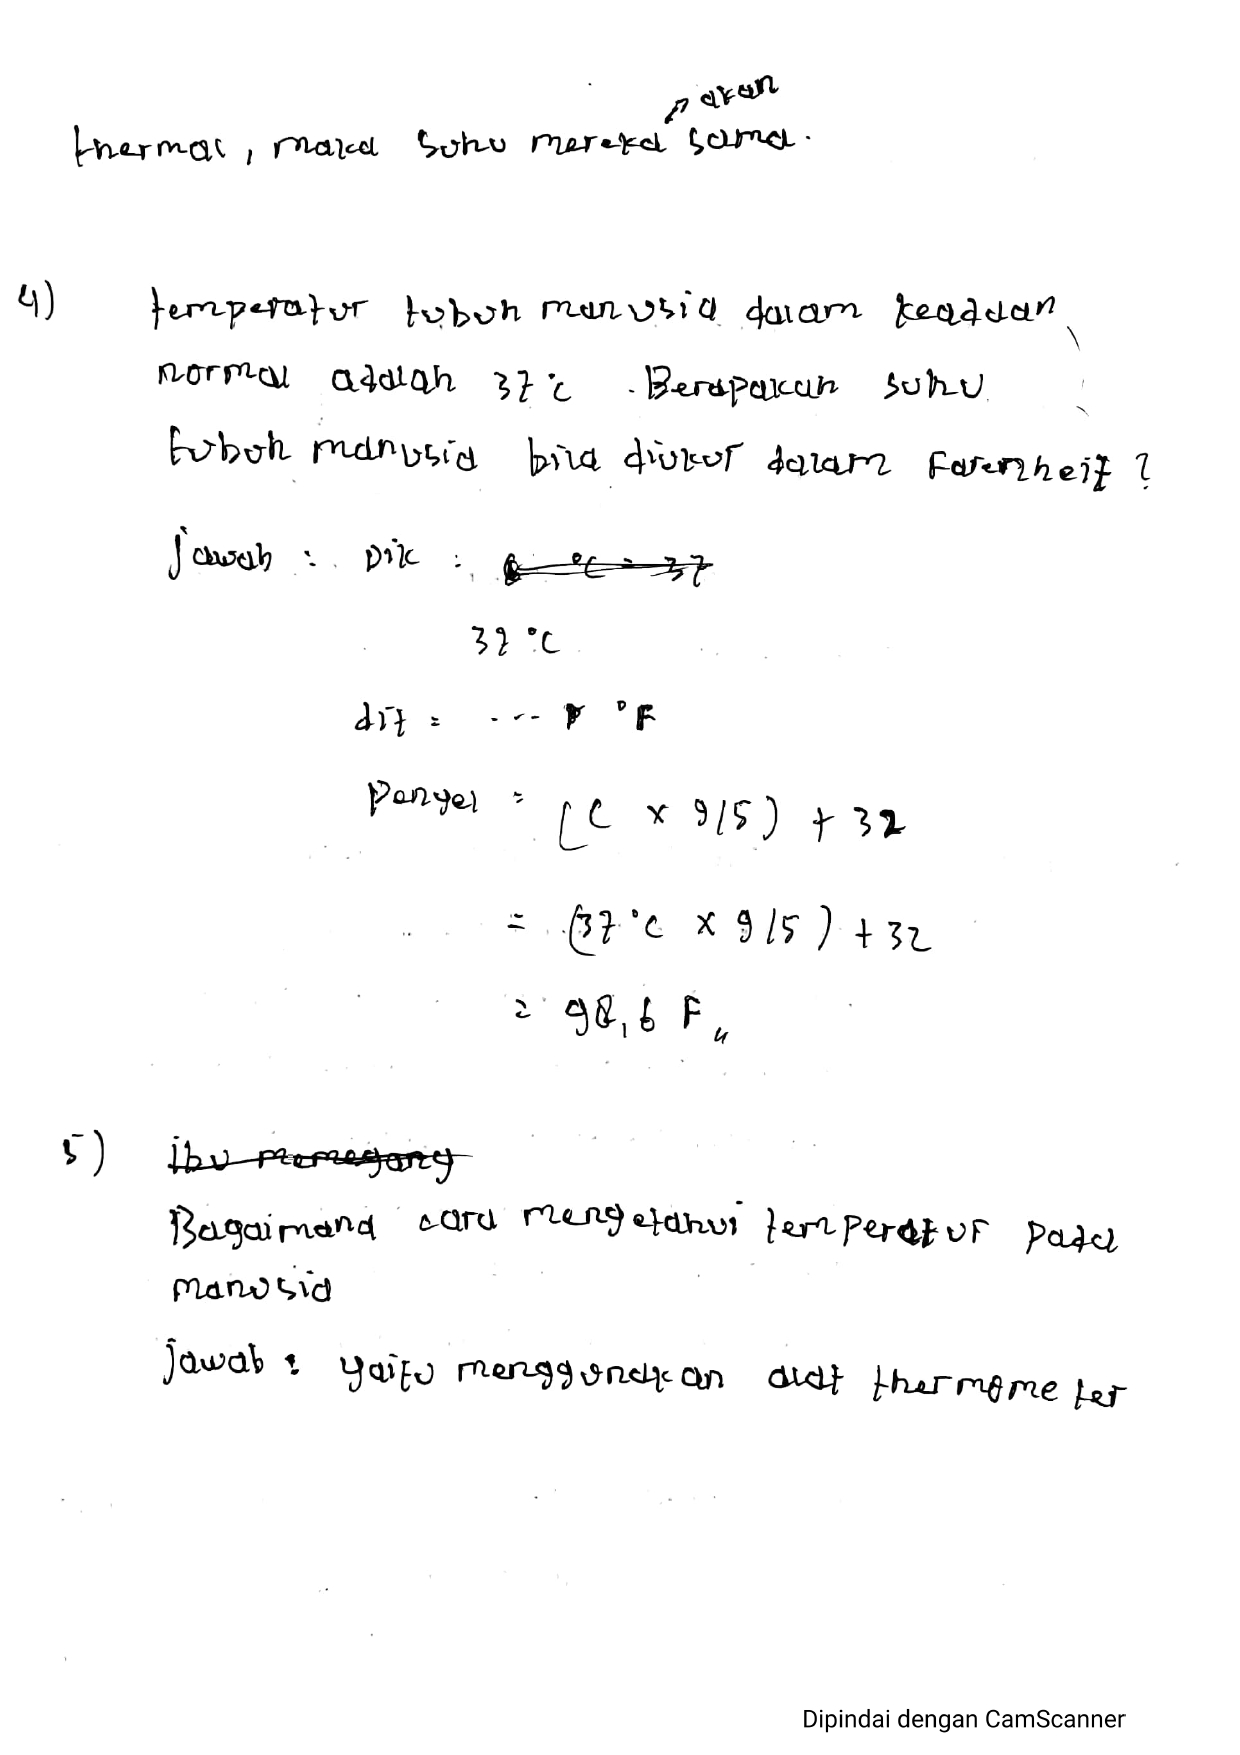 thermal, maka suhu mereka akan sama.
4) temperatur tubuh manusia dalam keadaan
normal adalah 37 °C. Berapakah suhu
tubuh manusia bila diukur dalam Farenheit?
jawab : Dik : °C = 37
37 °C
dit = .... °F
Penyel = (C x 9/5) + 32
= (37 °C x 9/5) + 32
= 98,6 F
5) ibu memegang
Bagaimana cara mengetahui temperatur pada
manusia
jawab : yaitu menggunakan alat thermometer
Dipindai dengan CamScanner